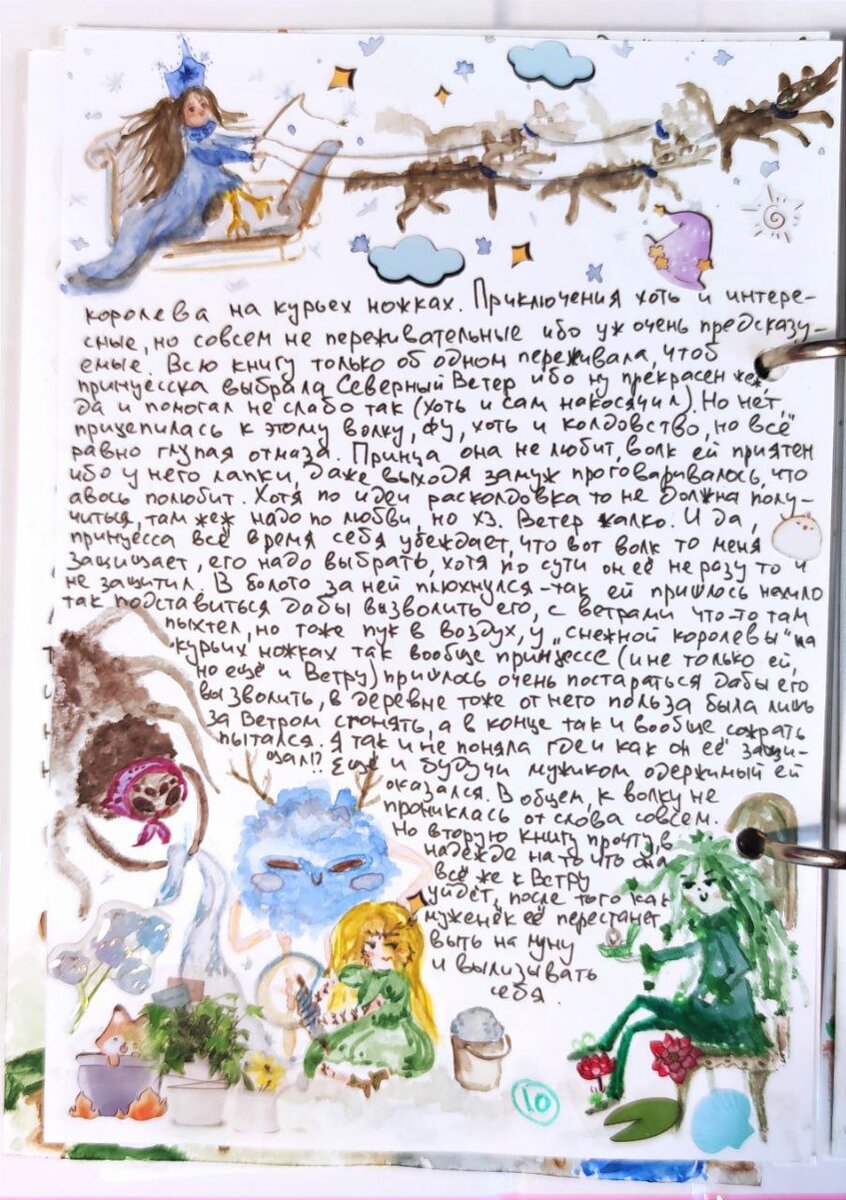 королева на курьех ножках. Приключения хоть и интере-
сные, но совсем не переживательные ибо уж очень предсказу-
емые. Всю книгу только об одном переживала, чтоб
принцесска выбрала Северный Ветер ибо ну прекрасен же,
да и помогал не слабо так (хоть и сам накосячил). Но нет,
прицепилась к этому волку, фу, хоть и колдовство, но всё
равно глупая отмаза. Принца она не любит, волк ей приятен
ибо у него лапки, даже выходя замуж проговаривалось, что
авось полюбит. Хотя по идеи расколдовка то не должна полу-
читься, там жеж надо по любви, но хз. Ветер жалко. И да,
принцесса всё время себя убеждает, что вот волк то меня
защищает, его надо выбрать, хотя по сути он её не разу то и
не защитил. В болото за ней плюхнулся - так ей пришлось нахило
так подставиться дабы вызволить его, с ветрами что-то там
пыхтел, но тоже пук в воздух, у "снежной королевы" на
курьих ножках так вообще принцессе (и не только ей,
но ещё и Ветру) пришлось очень постараться дабы его
вызволить, в деревне тоже от него польза была лишь
за Ветром сгонять, а в конце так и вообще сожрать
пытался. Я так и не поняла где и как он её защи-
щал!? Ещё и будучи мужиком одержимый ей
оказался. В общем, к волку не
прониклась от слова совсем.
Но вторую книгу прочту, в
надежде на то что она
всё же к Ветру
уйдёт, после того как
муженёк её перестанет
выть на луну
и вылизывать
себя.
10